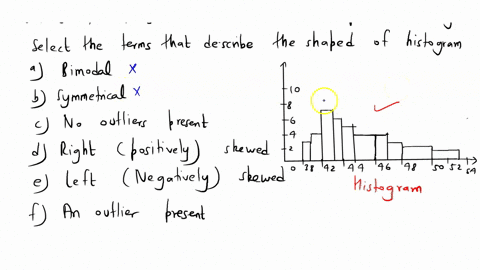 Select the terms that describe the shaped of histogram
a) Bimodal x
b) Symmetrical x
c) No outliers present
d) Right (positively) skewed
e) Left (Negatively) skewed
f) An outlier present
10
8
6
4
2
0 38 42 44 46 48 50 52 54
Histogram